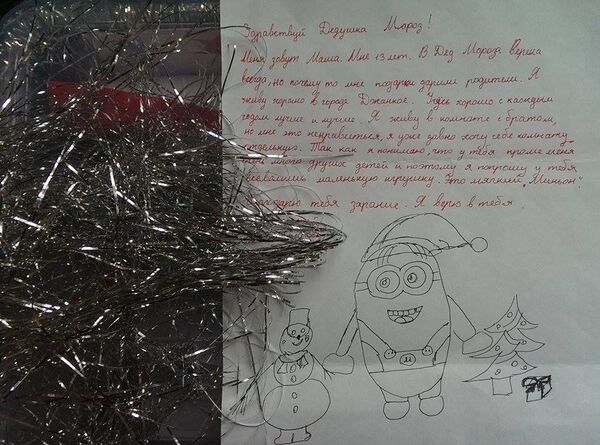 Здравствуй Дедушка Мороз!
Меня зовут Маша. Мне 13 лет. В Дед Мороза верила
всегда, но почему то мне подарки дарили родители. Я
живу хорошо в городе Джанкое. хорошо с каждым
годом лучше и лучше. Я живу в комнате с братом,
но мне это ненравиться, я уже давно хочу себе комнату
отдельную. Так как я понимаю, что у тебя кроме меня
много других детей и поэтому я попрошу у тебя
маленькую игрушку. Это мягкий Миньон.
тебя зарание. Я верю в тебя